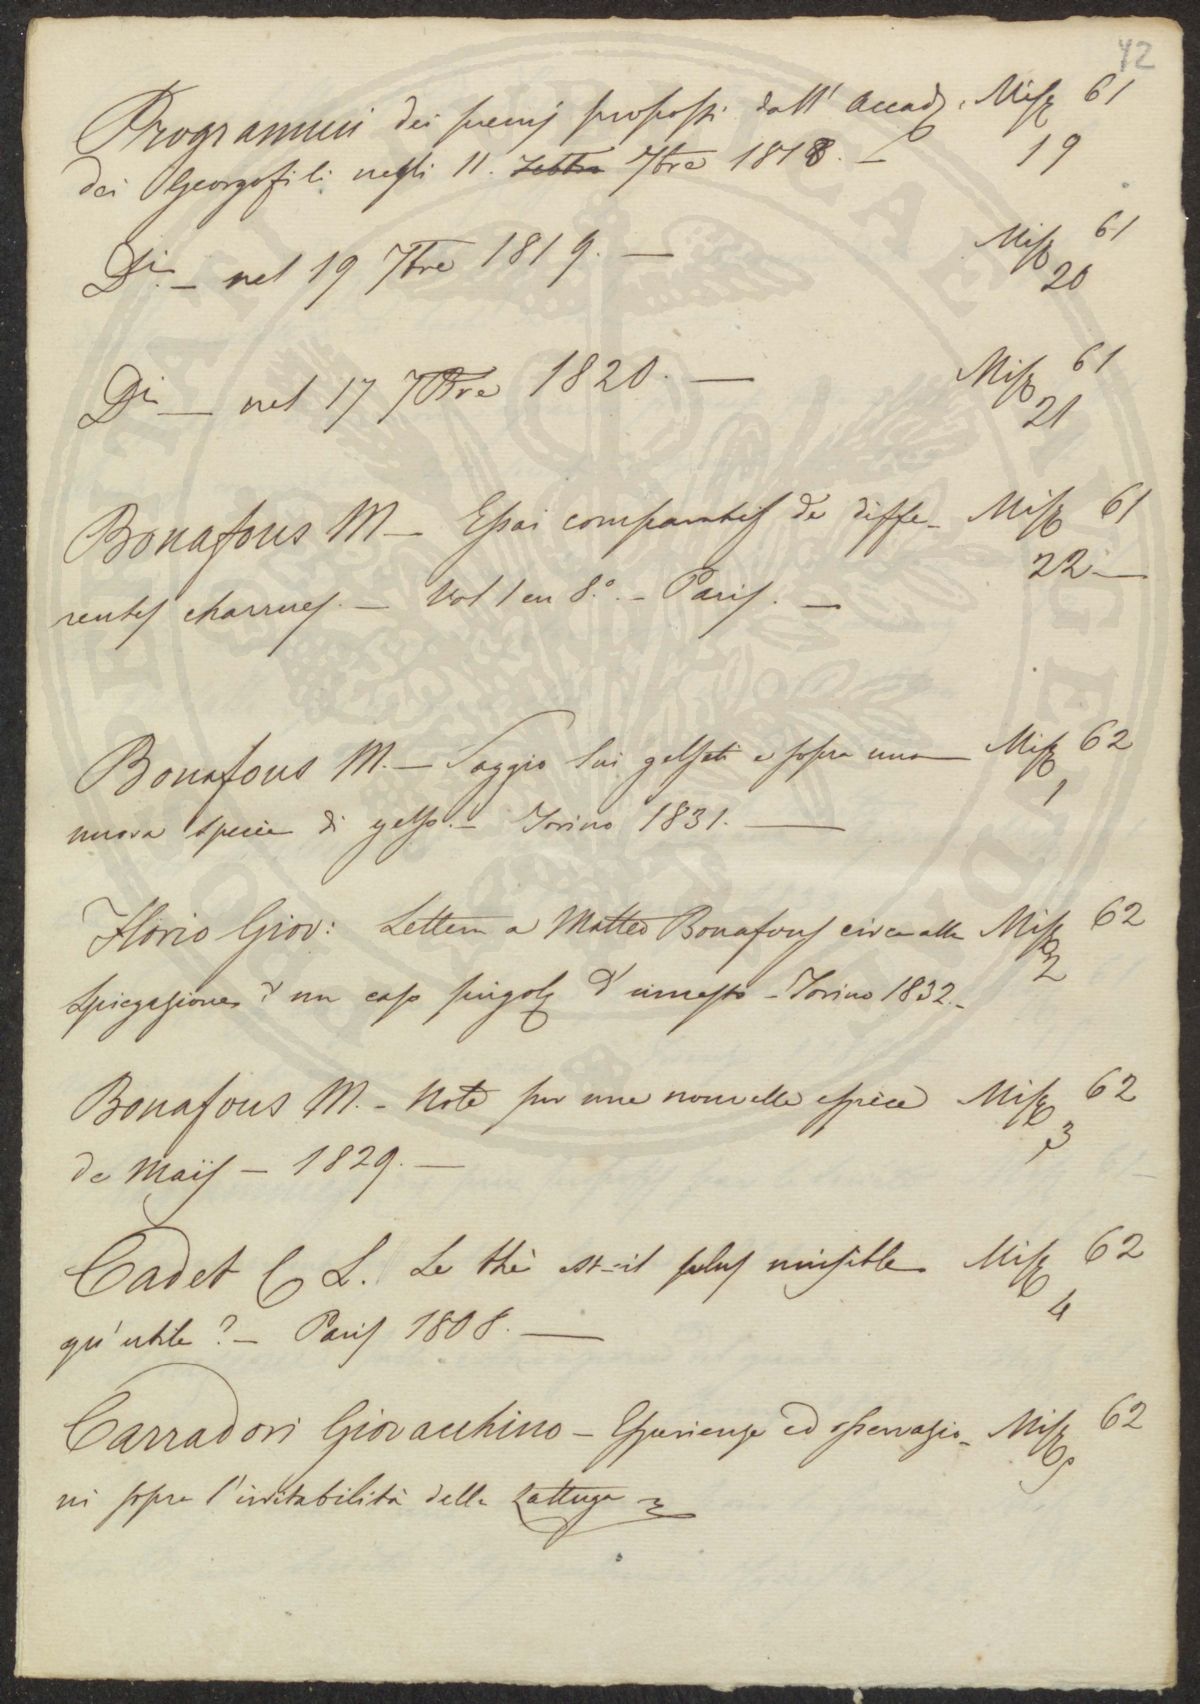 42
Programmi dei premj proposti dall' Accad. Misc 61
dei Georgofili negli 11. Settbre 7bre 1818. — 19
Di — nel 19 7bre 1819. — Misc 61
20
Di — nel 17 7bre 1820. — Misc 61
21
Bonafous M — Essai comparatif de diffe- Misc 61
rentes charrues. — Vol 1 en 8.° — Paris. — 22 —
Bonafous M. — Saggio sui gelseti e sopra una Misc 62
nuova specie di gelso. — Torino 1831. — 1
Florio Giov: Lettera a Matteo Bonafous circa alla Misc 62
spiegazione d'un caso singol d'innesto — Torino 1832. — 2
Bonafous M. — Note sur une nouvelle espèce Misc 62
de Maïs — 1829. — 3
Cadet C L. Le thè est-il plus nuisible Misc 62
qu'utile? — Paris 1808. — 4
Carradori Giovacchino — Esperienze ed osservazio- Misc 62
ni sopra l'irritabilità della Lattuga 5
POSTERITATI
AMICITIAE
AUGENDAE